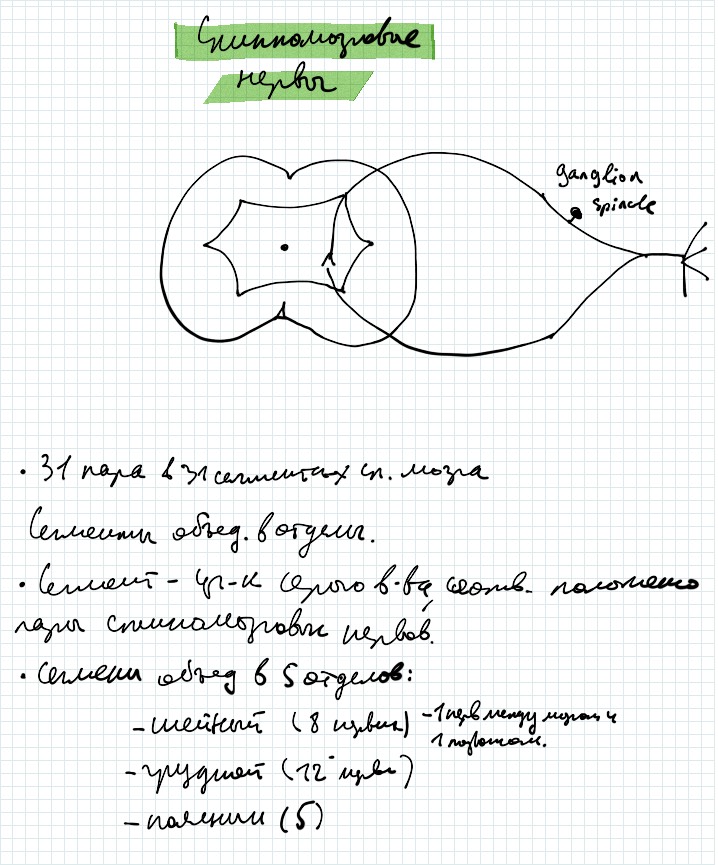 Спинномозговые
нервы
ganglion
spinale
• 31 пара в 31 сегментах сп. мозга
Сегменты объед. в отделы.
• Сегмент - уч-к серого в-ва, соотв. положению
пары спинномозговых нервов.
• Сегменты объед в 5 отделов:
- шейный (8 нервов) - 1 нерв между мозгом и
1 позвонком.
- грудной (12 нрв)
- поясничн (5)